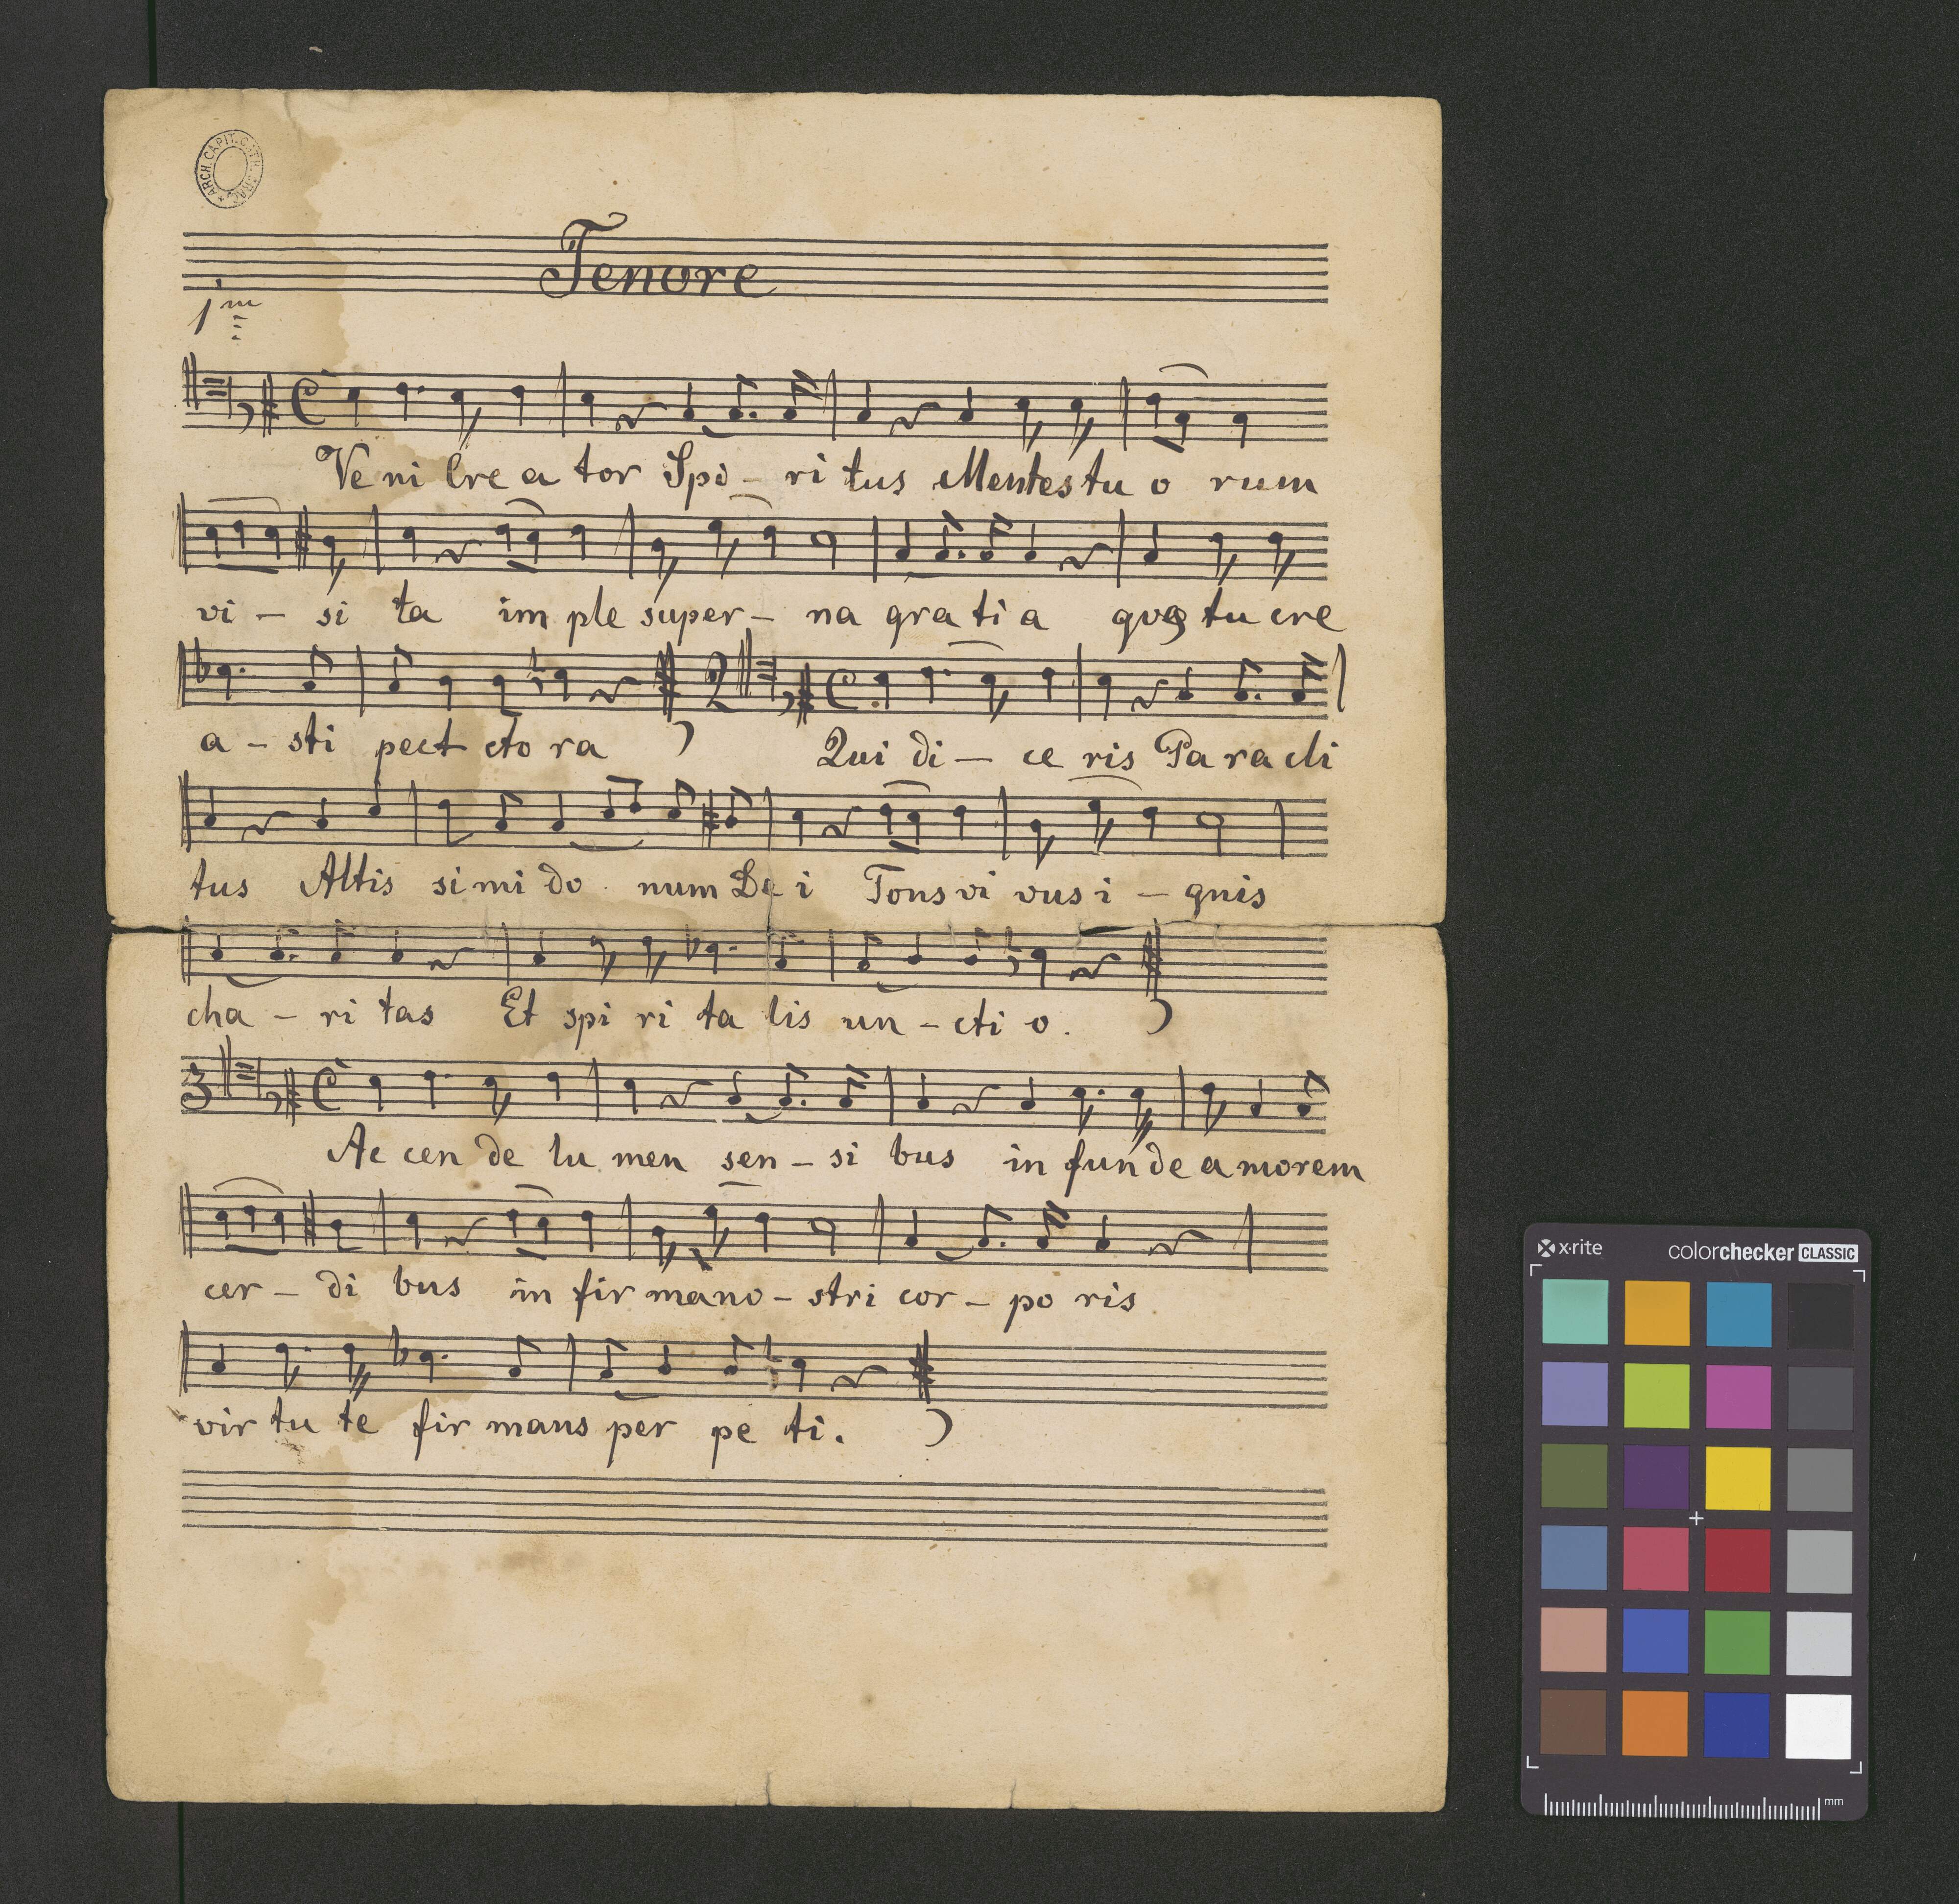 ARCH. CAPIT. CATH. GRAC.
Tenore
1m
Ve ni Cre a tor Spi - ri tus Mentes tu o rum
vi - si ta im ple super - na gra ti a quae tu cre
a - sti pect cto ra
2
Qui di - ce ris Pa ra cli
tus Altis si mi do num De i Fons vi vus i - gnis
cha - ri tas Et spi ri ta lis un - cti o.
3
Ac cen de lu men sen - si bus in fun de a morem
cer - di bus in fir ma no - stri cor - po ris
vir tu te fir mans per pe ti.
x·rite colorchecker CLASSIC
mm